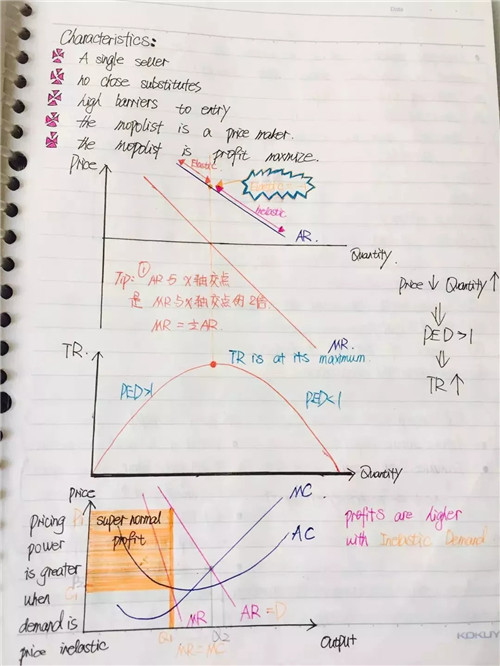 Date
Characteristics:
A single seller
no close substitutes
high barriers to entry
the mopolist is a price maker.
the mopolist is profit maxmize.
Price
Elastic
Inelastic
AR.
Quantity.
Tip: ① AR与X轴交点
是 MR与X轴交点的2倍
MR = ½AR.
MR.
Price ↓ Quantity ↑
PED>1
TR↑
TR.
TR is at its maximum
PED>1
PED<1
Quantity
Price
P1
super normal
profit
MC
AC
pricing
power
is greater
when
demand is
price inelastic
C1
MR
AR=D
Q1
Q2
MR=MC
Output
profits are higher
with Inelastic Demand
KOKUY